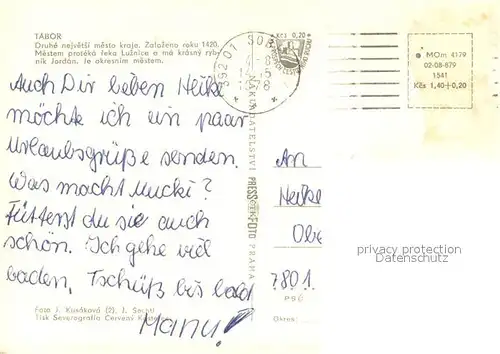 TÁBOR
Druhé největší město kraje. Založeno roku 1420.
Městem protéká řeka Lužnice a má krásný ryb-
ník Jordán. Je okresním městem.
Auch Dir lieben Heike
möchte ich ein paar
Urlaubsgrüße senden.
Was macht Mucki?
Fütterst du sie auch
schön. Ich gehe viel
baden. Tschüß bis bald
Manu!
Foto J. Kusáková (2), J.
Tisk Severografia Červený
NAKLADATELSTVÍ PRESSFOTO PRAHA
392 01
Kčs 0,20
MOm 4179
02-08-879
1541
Kčs 1,40+0,20
An
Heike
Obe
7801
PSČ
Okres:
privacy protection
Datenschutz